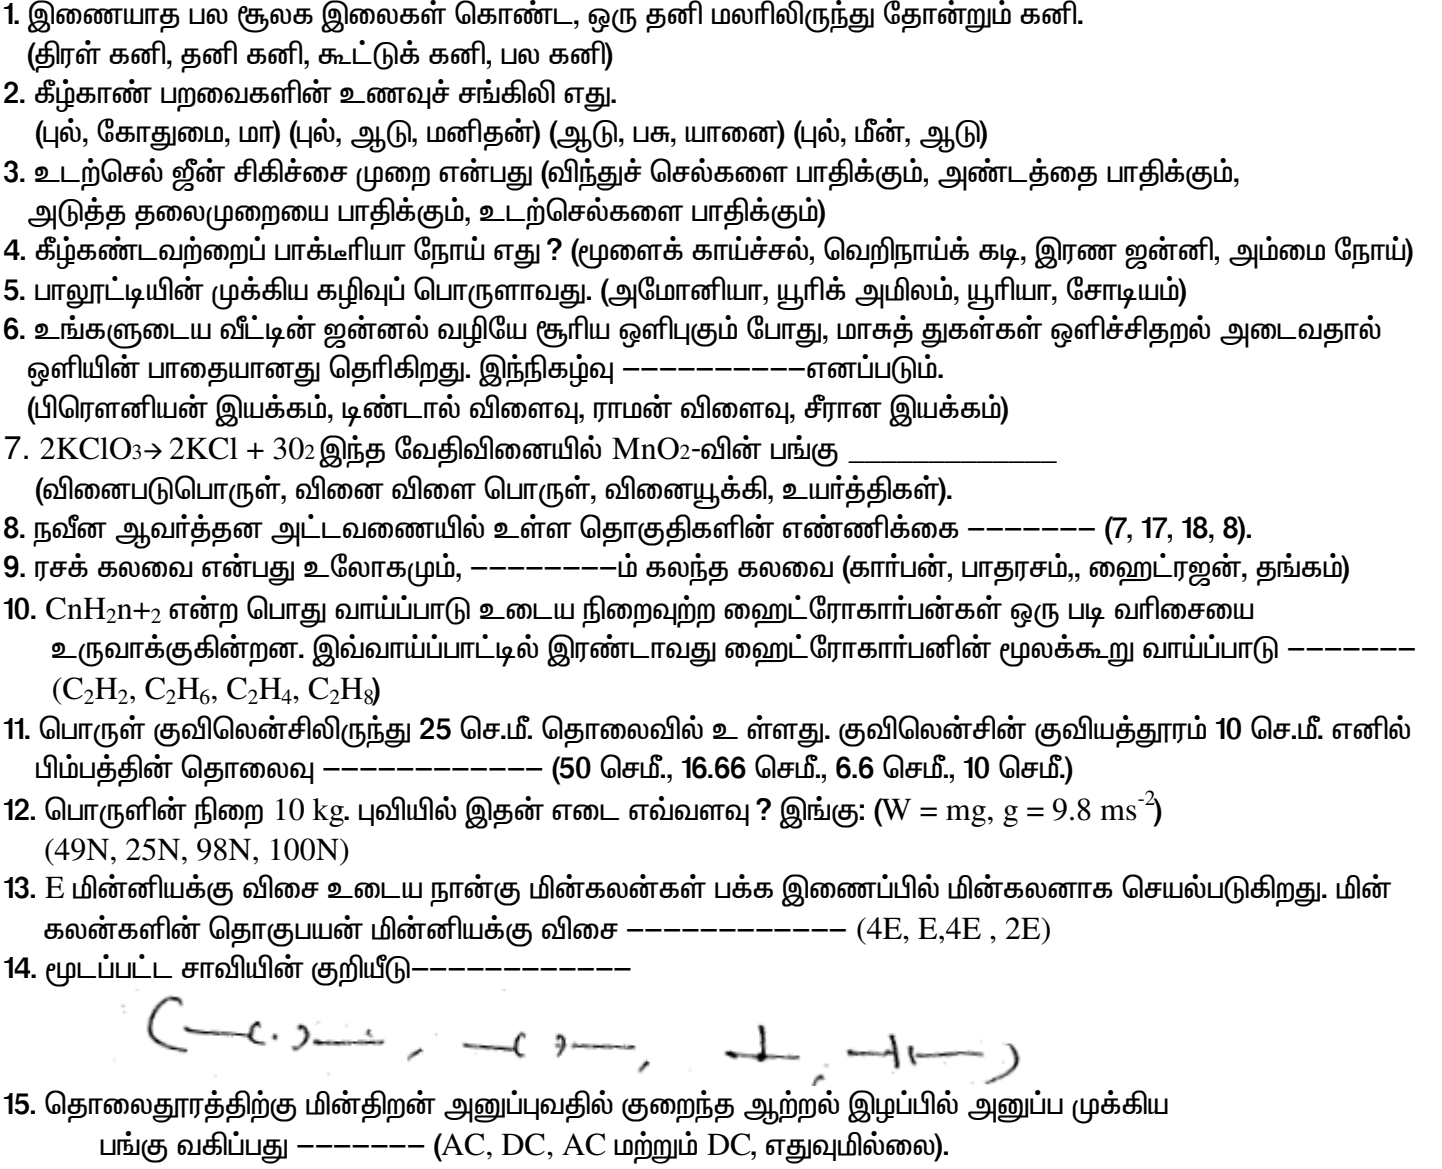 1. இணையாத பல சூலக இலைகள் கொண்ட, ஒரு தனி மலரிலிருந்து தோன்றும் கனி.
(திரள் கனி, தனி கனி, கூட்டுக் கனி, பல கனி)
2. கீழ்காண் பறவைகளின் உணவுச் சங்கிலி எது.
(புல், கோதுமை, மா) (புல், ஆடு, மனிதன்) (ஆடு, பசு, யானை) (புல், மீன், ஆடு)
3. உடற்செல் ஜீன் சிகிச்சை முறை என்பது (விந்துச் செல்களை பாதிக்கும், அண்டத்தை பாதிக்கும்,
அடுத்த தலைமுறையை பாதிக்கும், உடற்செல்களை பாதிக்கும்)
4. கீழ்கண்டவற்றைப் பாக்டீரியா நோய் எது ? (மூளைக் காய்ச்சல், வெறிநாய்க் கடி, இரண ஜன்னி, அம்மை நோய்)
5. பாலூட்டியின் முக்கிய கழிவுப் பொருளாவது. (அமோனியா, யூரிக் அமிலம், யூரியா, சோடியம்)
6. உங்களுடைய வீட்டின் ஜன்னல் வழியே சூரிய ஒளிபுகும் போது, மாசுத் துகள்கள் ஒளிச்சிதறல் அடைவதால்
ஒளியின் பாதையானது தெரிகிறது. இந்நிகழ்வு ––––––––––எனப்படும்.
(பிரௌனியன் இயக்கம், டிண்டால் விளைவு, ராமன் விளைவு, சீரான இயக்கம்)
7. 2KClO3→ 2KCl + 302 இந்த வேதிவினையில் MnO2-வின் பங்கு _____________
(வினைபடுபொருள், வினை விளை பொருள், வினையூக்கி, உயர்த்திகள்).
8. நவீன ஆவர்த்தன அட்டவணையில் உள்ள தொகுதிகளின் எண்ணிக்கை ––––––– (7, 17, 18, 8).
9. ரசக் கலவை என்பது உலோகமும், ––––––––ம் கலந்த கலவை (கார்பன், பாதரசம்,, ஹைட்ரஜன், தங்கம்)
10. CnH₂n+₂ என்ற பொது வாய்ப்பாடு உடைய நிறைவுற்ற ஹைட்ரோகார்பன்கள் ஒரு படி வரிசையை
உருவாக்குகின்றன. இவ்வாய்ப்பாட்டில் இரண்டாவது ஹைட்ரோகார்பனின் மூலக்கூறு வாய்ப்பாடு –––––––
(C₂H₂, C₂H₆, C₂H₄, C₂H₈)
11. பொருள் குவிலென்சிலிருந்து 25 செ.மீ. தொலைவில் உ ள்ளது. குவிலென்சின் குவியத்தூரம் 10 செ.மீ. எனில்
பிம்பத்தின் தொலைவு –––––––––––– (50 செமீ., 16.66 செமீ., 6.6 செமீ., 10 செமீ.)
12. பொருளின் நிறை 10 kg. புவியில் இதன் எடை எவ்வளவு ? இங்கு: (W = mg, g = 9.8 ms⁻²)
(49N, 25N, 98N, 100N)
13. E மின்னியக்கு விசை உடைய நான்கு மின்கலன்கள் பக்க இணைப்பில் மின்கலனாக செயல்படுகிறது. மின்
கலன்களின் தொகுபயன் மின்னியக்கு விசை –––––––––––– (4E, E,4E , 2E)
14. மூடப்பட்ட சாவியின் குறியீடு––––––––––––
15. தொலைதூரத்திற்கு மின்திறன் அனுப்புவதில் குறைந்த ஆற்றல் இழப்பில் அனுப்ப முக்கிய
பங்கு வகிப்பது ––––––– (AC, DC, AC மற்றும் DC, எதுவுமில்லை).